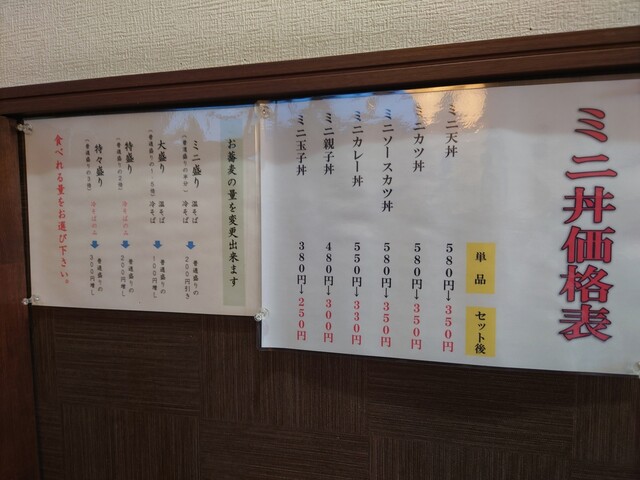 ミニ丼価格表
単品 セット後
ミニ天丼 580円→350円
ミニカツ丼 580円→350円
ミニソースカツ丼 580円→350円
ミニカレー丼 550円→330円
ミニ親子丼 480円→300円
ミニ玉子丼 380円→250円
お蕎麦の量を変更出来ます
ミニ盛り 温そば 冷そば ➡ 普通盛りの
(普通盛りの半分) 200円引き
大盛り 温そば 冷そば ➡ 普通盛りの
(普通盛りの1.5倍) 100円増し
特盛り 冷そばのみ ➡ 普通盛りの
(普通盛りの2倍) 200円増し
特々盛り 冷そばのみ ➡ 普通盛りの
(普通盛りの3倍) 300円増し
食べれる量をお選び下さい。